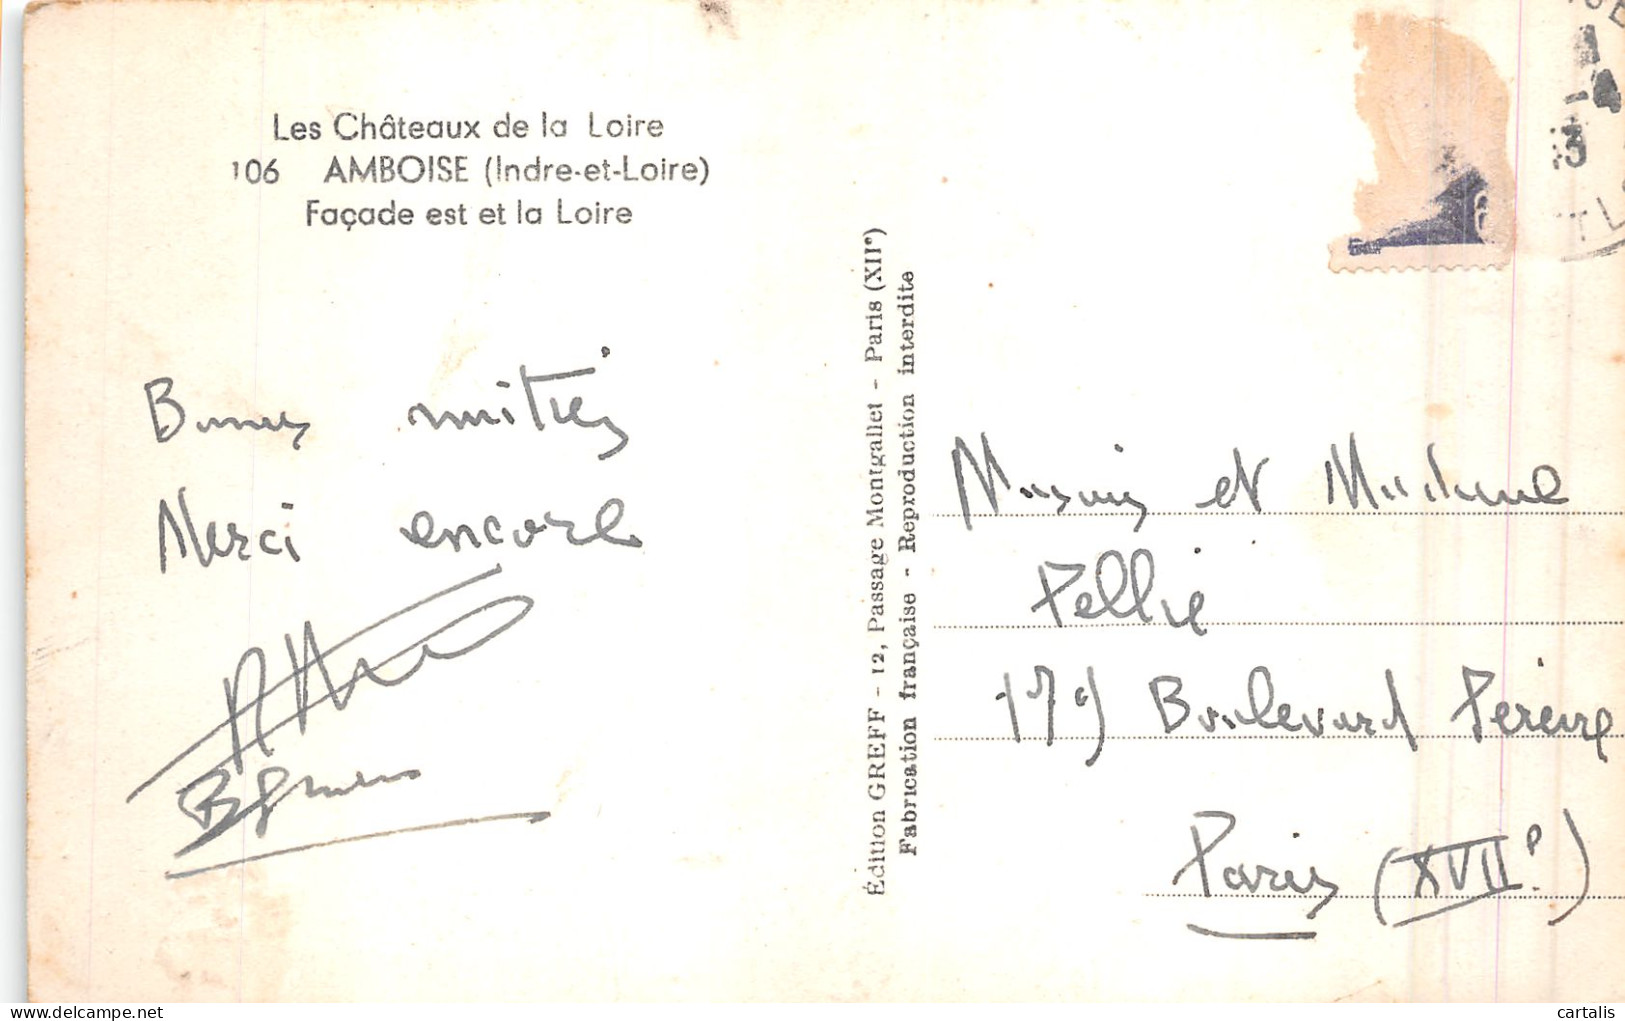 Les Châteaux de la Loire
106 AMBOISE (Indre-et-Loire)
Façade est et la Loire
Bonnes amitiés
Merci encore
Édition GREFF - 12, Passage Montgallet - Paris (XIIe)
Fabrication française - Reproduction interdite
Monsieur et Madame
Pellié
179 Boulevard Pereire
Paris (XVIIe)
cartalis